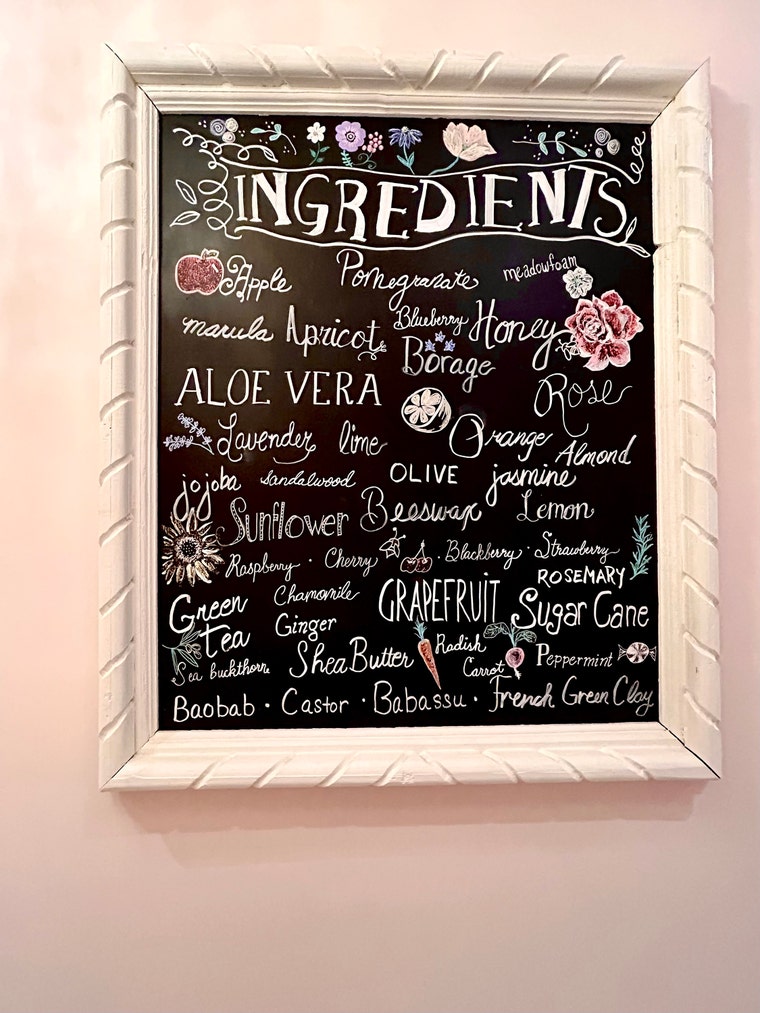 INGREDIENTS
Apple Pomegranate meadowfoam
marula Apricot Blueberry Honey
Borage
ALOE VERA Rose
Lavender lime Orange Almond
jojoba sandalwood OLIVE jasmine
Sunflower Beeswax Lemon
Raspberry · Cherry · Blackberry · Strawberry
ROSEMARY
Green Tea Chamomile GRAPEFRUIT Sugar Cane
Ginger
Sea buckthorn Shea Butter Radish Carrot Peppermint
Baobab · Castor · Babassu · French Green Clay